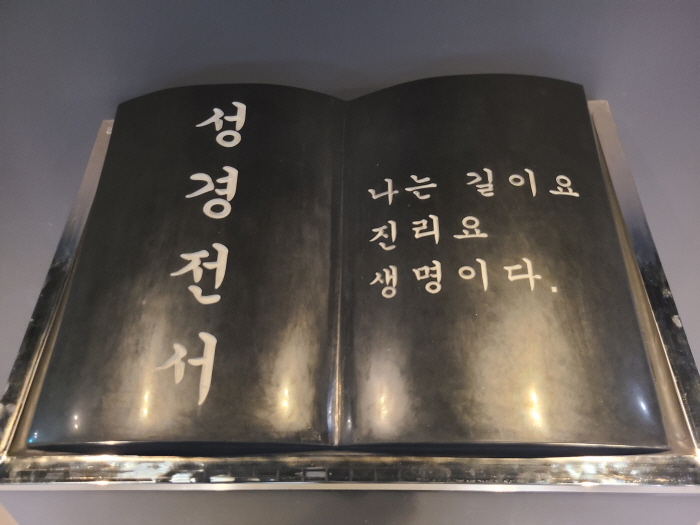 성경전서
나는 길이요
진리요
생명이다.